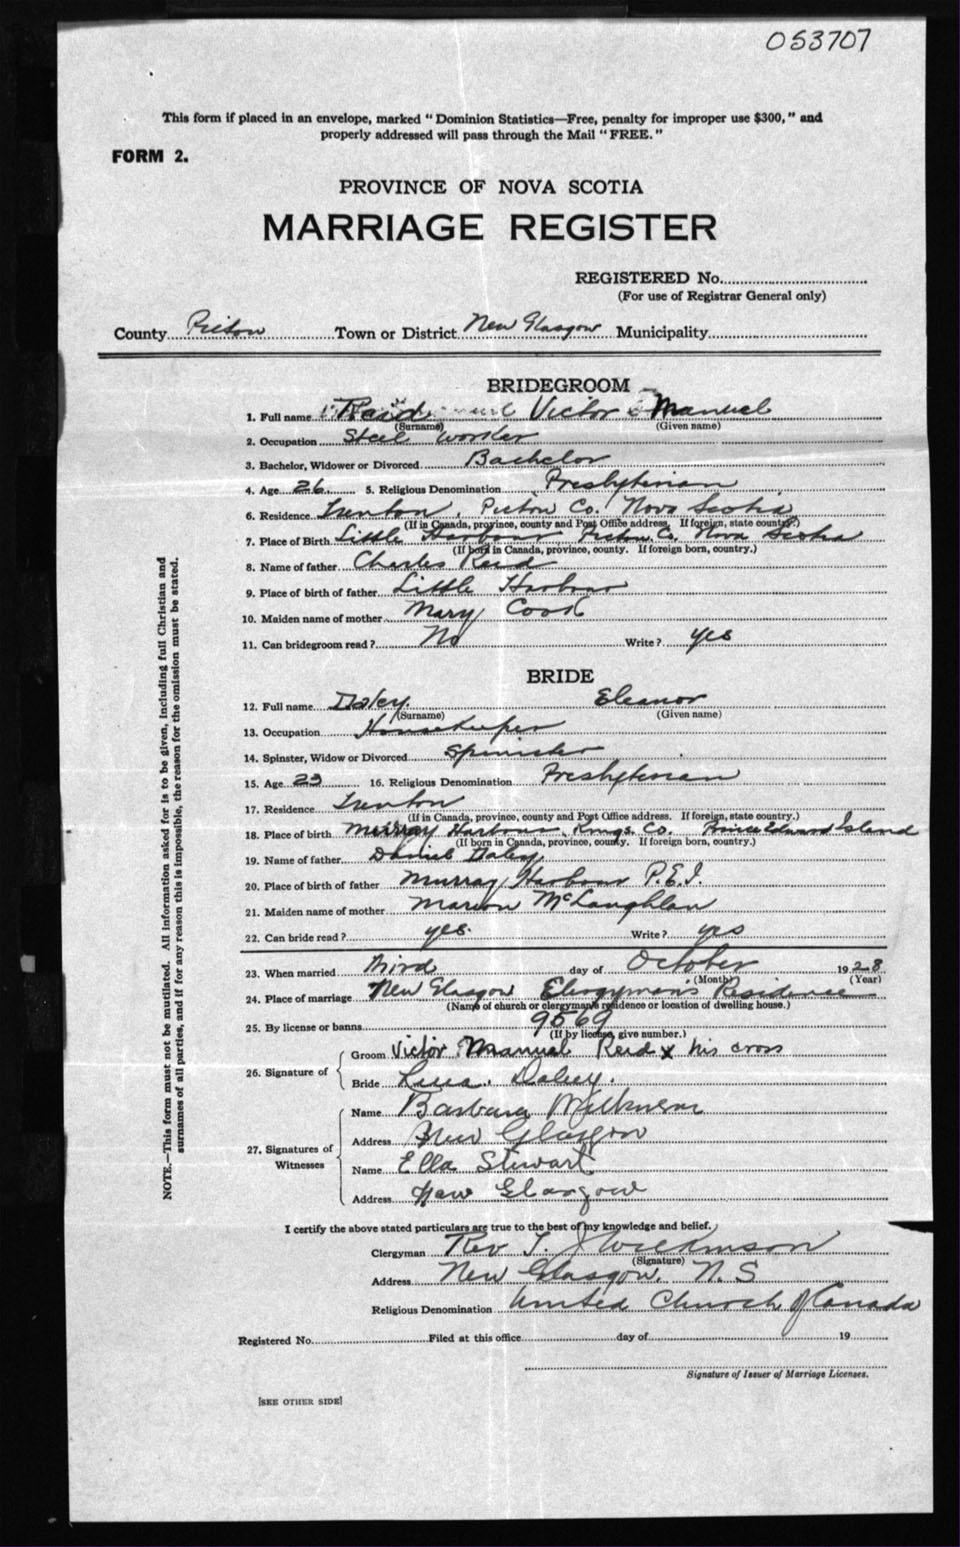 053707
This form if placed in an envelope, marked "Dominion Statistics—Free, penalty for improper use $300," and
properly addressed will pass through the Mail "FREE."
FORM 2.
PROVINCE OF NOVA SCOTIA
MARRIAGE REGISTER
REGISTERED No.
(For use of Registrar General only)
County Pictou Town or District New Glasgow Municipality
BRIDEGROOM
1. Full name Reid Victor Manuel
(Surname) (Given name)
2. Occupation Steel worker
3. Bachelor, Widower or Divorced Bachelor
4. Age 26 5. Religious Denomination Presbyterian
6. Residence Trenton, Pictou Co. Nova Scotia
(If in Canada, province, county and Post Office address. If foreign, state country.)
7. Place of Birth Little Harbour Pictou Co. Nova Scotia
(If born in Canada, province, county. If foreign born, country.)
8. Name of father Charles Reid
9. Place of birth of father Little Harbour
10. Maiden name of mother Mary Cook
11. Can bridegroom read? No Write? yes
BRIDE
12. Full name Daley Eleanor
(Surname) (Given name)
13. Occupation Housekeeper
14. Spinster, Widow or Divorced Spinster
15. Age 23 16. Religious Denomination Presbyterian
17. Residence Trenton
(If in Canada, province, county and Post Office address. If foreign, state country.)
18. Place of birth Murray Harbour, Kings Co. Prince Edward Island
(If born in Canada, province, county. If foreign born, country.)
19. Name of father Daniel Daley
20. Place of birth of father Murray Harbour P.E.I.
21. Maiden name of mother Marion McLaughlan
22. Can bride read? yes. Write? yes
23. When married Third day of October 1928
(Month) (Year)
24. Place of marriage New Glasgow Clergyman's Residence
(Name of church or clergyman's residence or location of dwelling house.)
25. By license or banns 9569
(If by license, give number.)
26. Signature of
Groom Victor Manuel Reid x his cross
Bride Daley.
27. Signatures of Witnesses
Name Barbara
Address New Glasgow
Name Ella Stewart
Address New Glasgow
I certify the above stated particulars are true to the best of my knowledge and belief.
Clergyman Rev T. J Wilkinson
(Signature)
Address New Glasgow, N.S
Religious Denomination United Church of Canada
Registered No. Filed at this office day of 19
Signature of Issuer of Marriage Licenses.
[SEE OTHER SIDE]
NOTE.—This form must not be mutilated. All information asked for is to be given, including full Christian and
surnames of all parties, and if for any reason this is impossible, the reason for the omission must be stated.